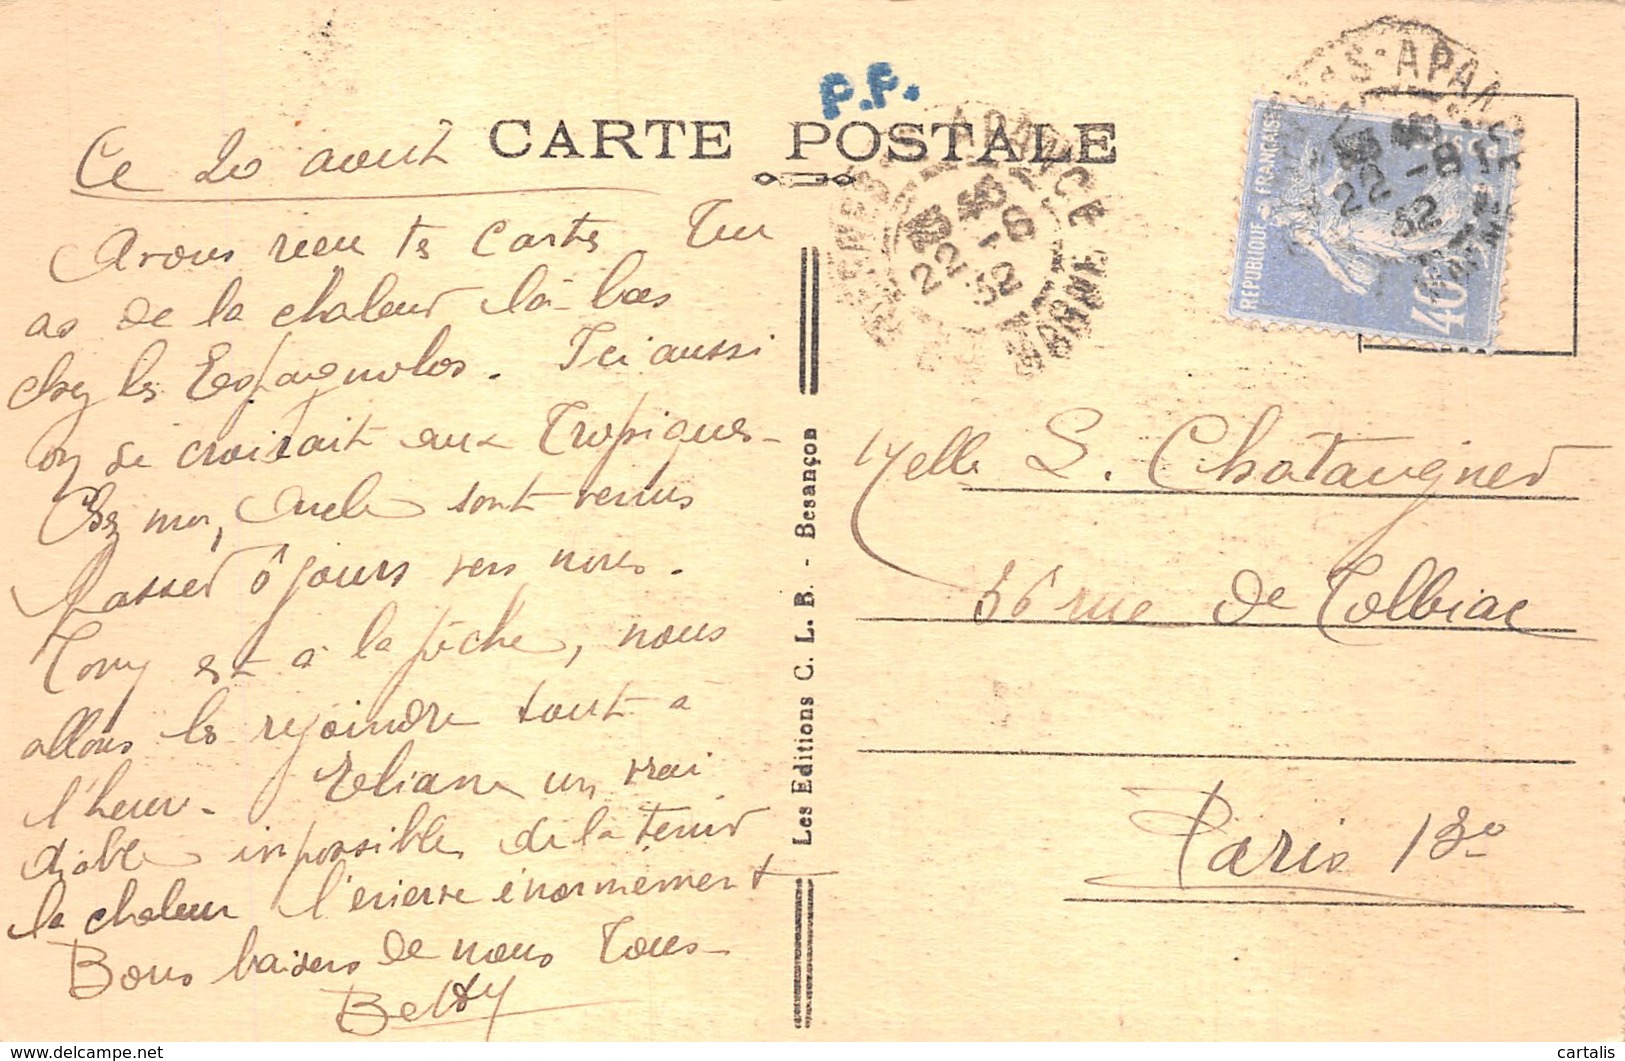 P.P.
CARTE POSTALE
Ce 20 août
Avons reçu tes cartes Tu
as de la chaleur là-bas
chez les Espagnolos. Ici aussi
on se croirait aux Tropiques -
Chez moi, sont venus
passer 8 jours vers nous.
Tony est à la pêche, nous
allons les rejoindre tout à
l'heure. Eliane un vrai
diable impossible de la tenir
la chaleur l'énerve énormément
Bons baisers de nous Tous -
Betty
Les Editions C. L. B. - Besançon
REPUBLIQUE FRANÇAISE
POSTES
40c
APANCE
22 -8
32
MARNE
APANCE
22 -8
32
HTE MARNE
Melle S. Chataugner
56 rue de Tolbiac
Paris 13e
cartalis